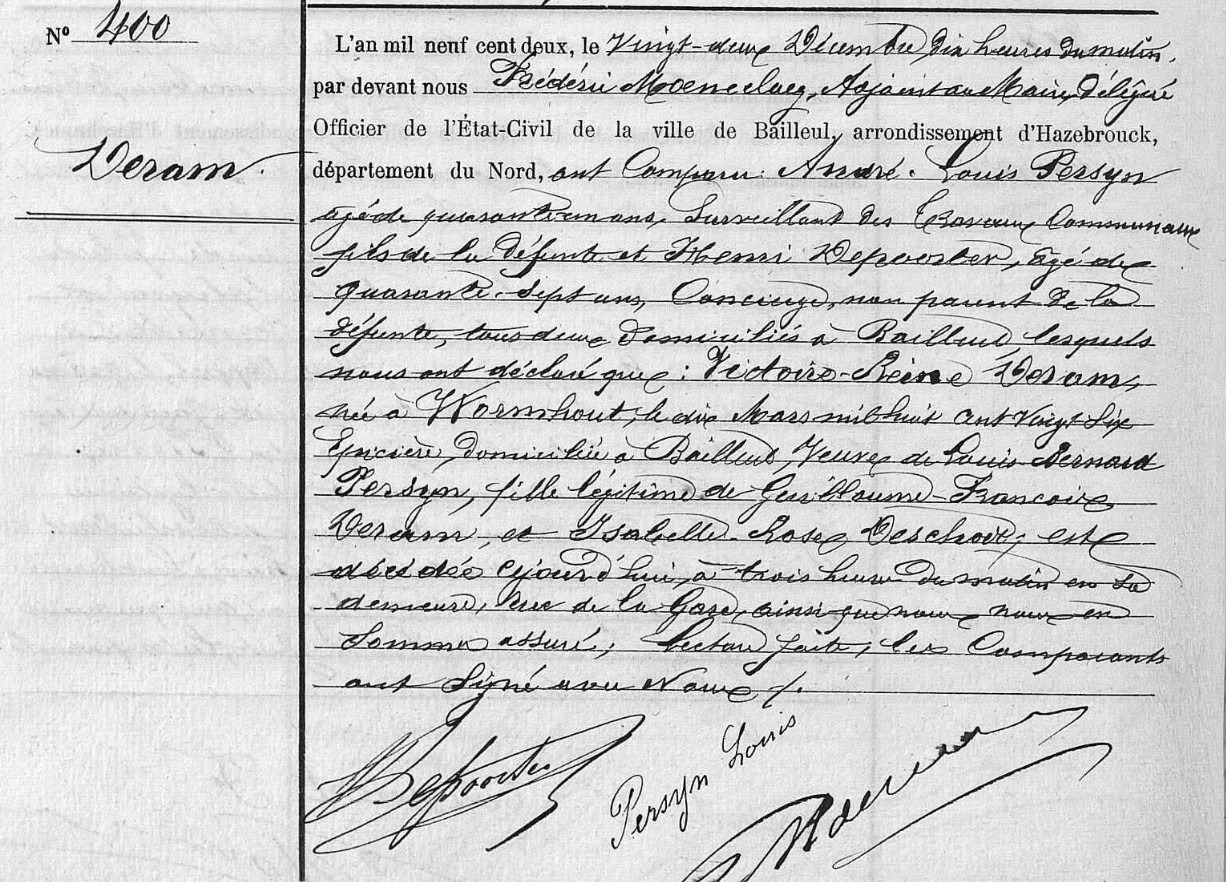 N° 400
L'an mil neuf cent deux, le Vingt-deux Décembre dix heures du matin,
par devant nous Frédéric Moeneclaey, Adjoint au Maire, Délégué
Officier de l'État-Civil de la ville de Bailleul, arrondissement d'Hazebrouck,
Deram.
département du Nord, ont Comparu : André-Louis Persyn
âgé de quarante un ans, Surveillant des Travaux Communaux
fils de la défunte et Henri Depoorter, âgé de
quarante-sept ans, Concierge, non parent de la
défunte, tous deux domiciliés à Bailleul lesquels
nous ont déclaré que : Victoire-Reine Deram,
née à Wormhout, le dix Mars mil huit cent vingt six
Epicière, domiciliée à Bailleul, Veuve de Louis Bernard
Persyn, fille légitime de Guillaume-François
Deram, et Isabelle-Rose Deschodt, est
décédée cejourd'hui, à trois heures du matin en sa
demeure, Rue de la Gare, ainsi que nous nous en
sommes assuré, lecture faite, les Comparants
ont Signé avec Nous /.
Depoorter
Persyn Louis